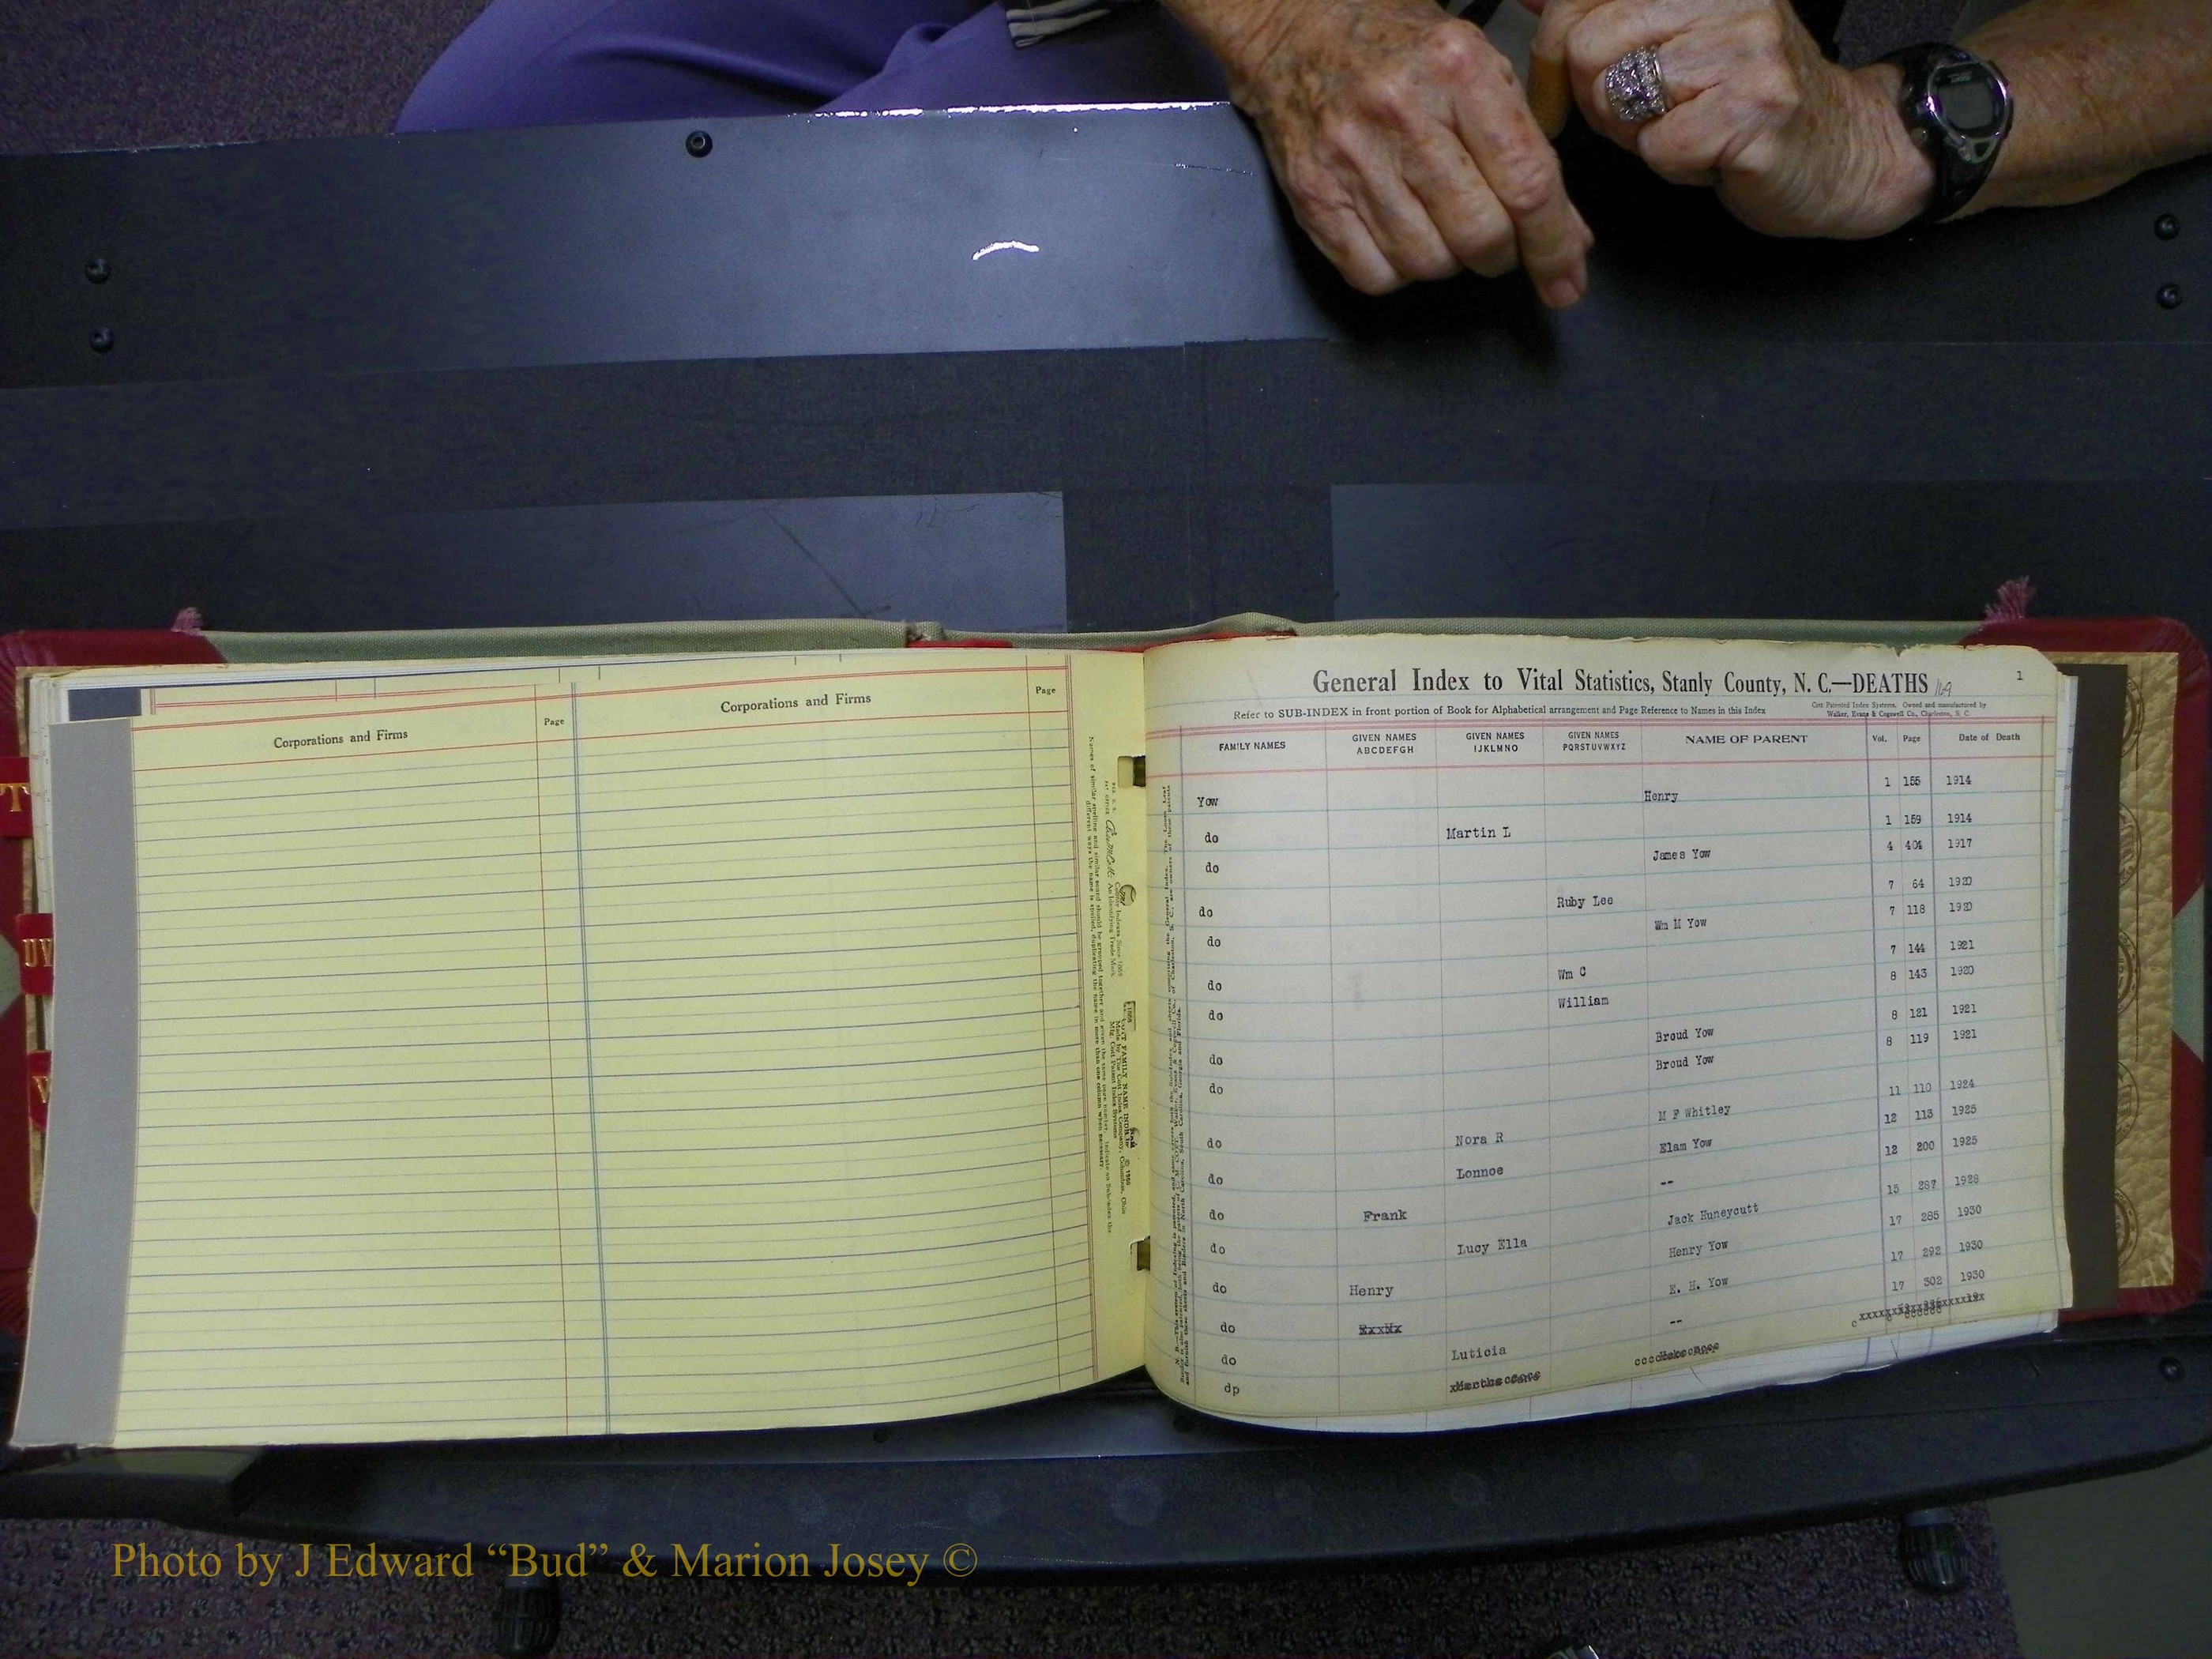 Corporations and Firms
Page
Corporations and Firms
Page
T
UV
General Index to Vital Statistics, Stanly County, N. C.—DEATHS 169
1
Refer to SUB-INDEX in front portion of Book for Alphabetical arrangement and Page Reference to Names in this Index
Cott Patented Index Systems. Owned and manufactured by
Walker, Evans & Cogswell Co., Charleston, S. C.
FAMILY NAMES GIVEN NAMES ABCDEFGH GIVEN NAMES IJKLMNO GIVEN NAMES PQRSTUVWXYZ NAME OF PARENT Vol. Page Date of Death
Yow Henry 1 155 1914
do Martin L 1 159 1914
do James Yow 4 404 1917
do Ruby Lee 7 64 1920
do Wm M Yow 7 118 1920
do Wm C 7 144 1921
do William 8 143 1920
do Broud Yow 8 121 1921
do Broud Yow 8 119 1921
do Nora R M F Whitley 11 110 1924
do Lonnoe Elam Yow 12 113 1925
do Frank -- 12 200 1925
do Lucy Ella Jack Huneycutt 15 287 1928
do Henry Henry Yow 17 285 1930
do E. H. Yow 17 292 1930
do Luticia -- 17 302 1930
dp
Photo by J Edward “Bud” & Marion Josey ©